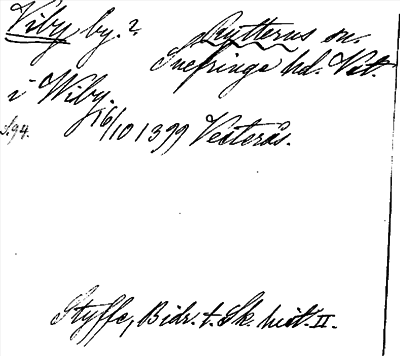 Viby by.? Rytterns sn.
Snefringe hd. Vst.
i Wiby.
16/10 1399 Vesterås.
s. 94.
Styffe, Bidr. t. Sk. hist. II.